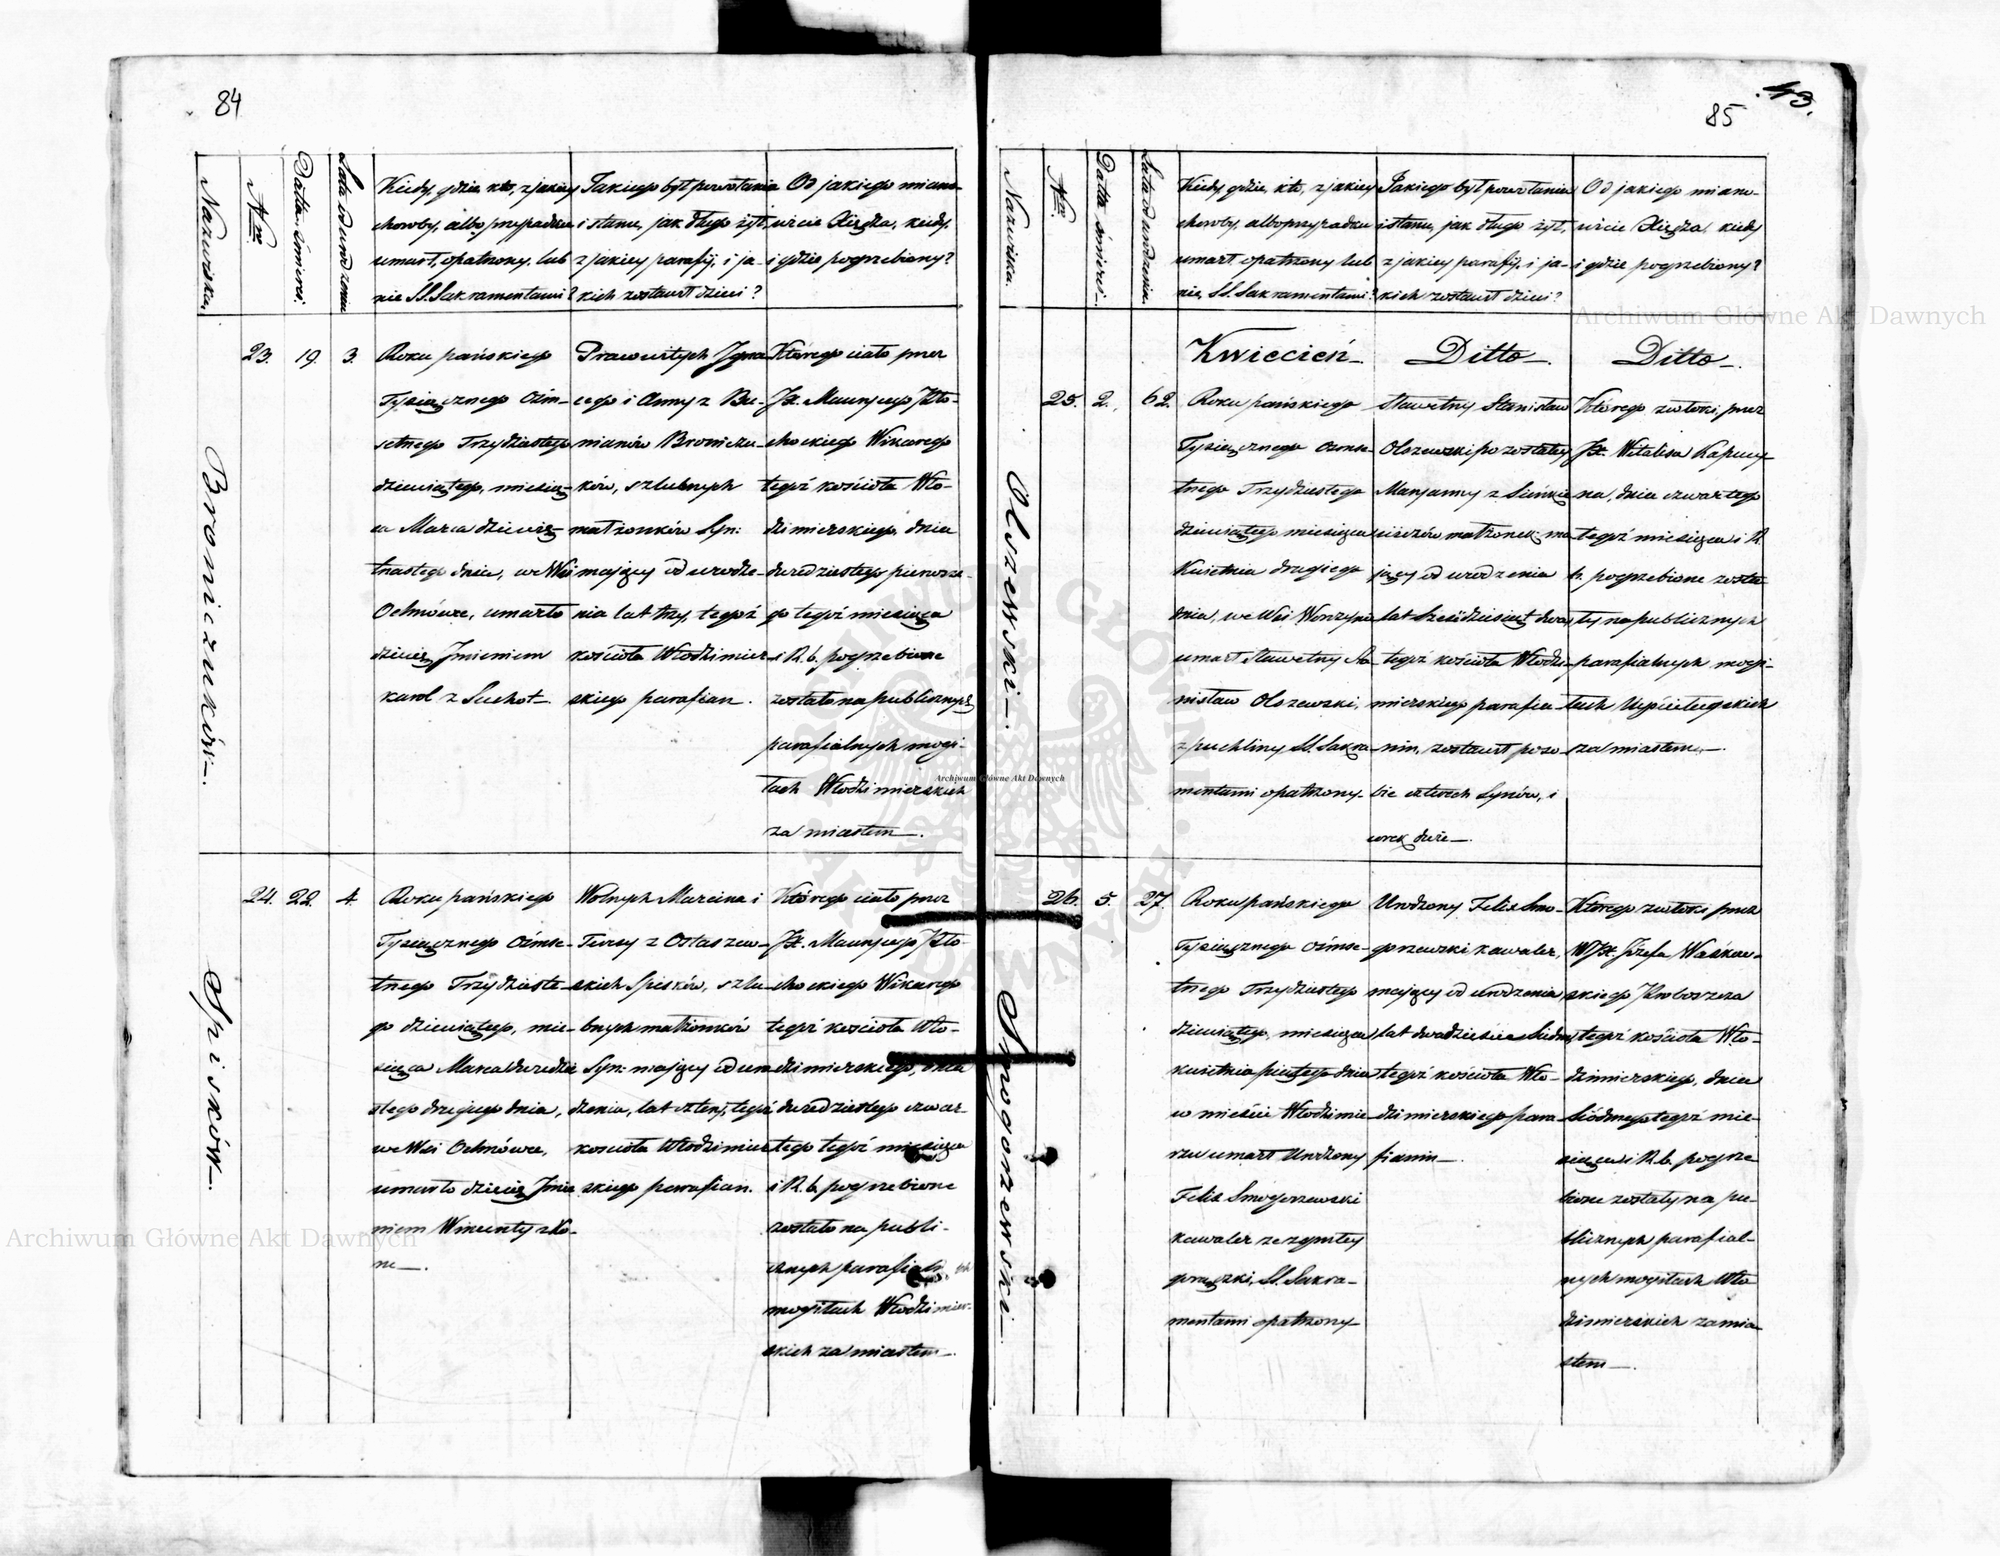 84
Nazwiska.
Nro
Datta śmierci.
Lata od urodzenia
Kiedy, gdzie, kto, z jakiey
choroby, albo przypadku
umarł, opatrzony, lub
nie SS. Sakramentami?
Jakiego był powołania
i stanu, jak długo żył,
z jakiey parafij, i ja-
kich zostawił dzieci?
Od jakiego miano-
wicie Xiędza, kiedy,
i gdzie pogrzebiony?
Broniczuków.
23. 19. 3.
Roku pańskiego
Tysiącznego Ośm-
setnego Trzydziestego
dziewiątego, miesią-
ca Marca dziewię-
tnastego dnia, we Wsi
Ochnówce, umarło
dziecię Imieniem
Karol z Suchot.
Prawowitych Igna-
cego i Anny z
Broniczu-
ków, szlubnych
małżonków Syn:
mający od urodze-
nia lat trzy, tegoż
kościoła Włodzimier-
skiego parafian.
Którego ciało przez
JX. Maurycego Kło-
chockiego Wikarego
tegoż kościoła Wło-
dzimierskiego, dnia
dwudziestego pierwsze-
go tegoż miesiąca
i R. b. pogrzebione
zostało na publicznych
parafialnych mogi-
łach Włodzimierskich
za miastem.
Spisków.
24. 22. 4.
Roku pańskiego
Tysiącznego Ośmse-
tnego Trzydzieste-
go dziewiątego, mie-
siąca Marca dwudzie-
stego drugiego dnia,
we Wsi Ochnówce,
umarło dziecię Imie-
niem Wincenty z Ko-
ru.
Wolnych Marcina i
Teresy z Ostaszew-
skich Spisków, szlu-
bnych małżonków
Syn: mający od uro-
dzenia, lat cztery, tegoż
kościoła Włodzimier-
skiego parafian.
Którego ciało przez
JX. Maurycego Kło-
chockiego Wikarego
tegoż kościoła Wło-
dzimierskiego, dnia
dwudziestego czwar-
tego tegoż miesiąca
i R. b. pogrzebione
zostało na publi-
cznych parafialnych
mogiłach Włodzimier-
skich za miastem.
85
43.
Nazwiska.
Nro
Datta śmierci.
Lata od urodzenia.
Kiedy, gdzie, kto, z jakiey
choroby, albo przypadku
umarł opatrzony lub
nie, SS. Sakramentami?
Jakiego był powołania
i stanu, jak długo żył,
z jakiey parafij, i ja-
kich zostawił dzieci?
Od jakiego miano-
wicie Xiędza, kiedy
i gdzie pogrzebiony?
Kwiecień
Ditto
Ditto
Olszewski.
25. 2. 62.
Roku pańskiego
Tysiącznego Ośmse-
tnego Trzydziestego
dziewiątego miesiąca
Kwietnia drugiego
dnia, we Wsi
umarł Sławetny Sta-
nisław Olszewski,
z puchliny SS. Sakra-
mentami opatrzony
Sławetny Stanisław
Olszewski pozostałey
Maryanny z
małżonek ma-
jący od urodzenia
lat sześćdziesiąt dwa
tegoż kościoła Włodzi-
mierskiego parafia-
nin, zostawił po so-
bie czterech Synów, i
córek dwie.
Którego zwłoki, przez
JX. Witalisa Kapucy-
na, dnia czwartego
tegoż miesiąca i R.
b. pogrzebione zosta-
ły na publicznych
parafialnych mogi-
łach Uściługskich
za miastem.
Smogorzewski.
26. 5. 27.
Roku pańskiego
Tysiącznego Ośmse-
tnego Trzydziestego
dziewiątego, miesiąca
Kwietnia piątego dnia
w mieście Włodzimie-
rzu umarł Urodzony
Felix Smogorzewski
kawaler ze zgniłey
gorączki, SS. Sakra-
mentami opatrzony
Urodzony Felix Smo-
gorzewski kawaler,
mający od urodzenia
lat dwadzieścia Siedm,
tegoż kościoła Wło-
dzimierskiego para-
fianin.
Którego zwłoki przez
WJX. Józefa Waśkow-
skiego Proboszcza
tegoż kościoła Wło-
dzimierskiego, dnia
Siódmego tegoż mie-
siąca i R. b. pogrze-
bione zostały na pu-
blicznych parafial-
nych mogiłach Wło-
dzimierskich za mia-
stem.
Archiwum Główne Akt Dawnych
Archiwum Główne Akt Dawnych
Archiwum Główne Akt Dawnych